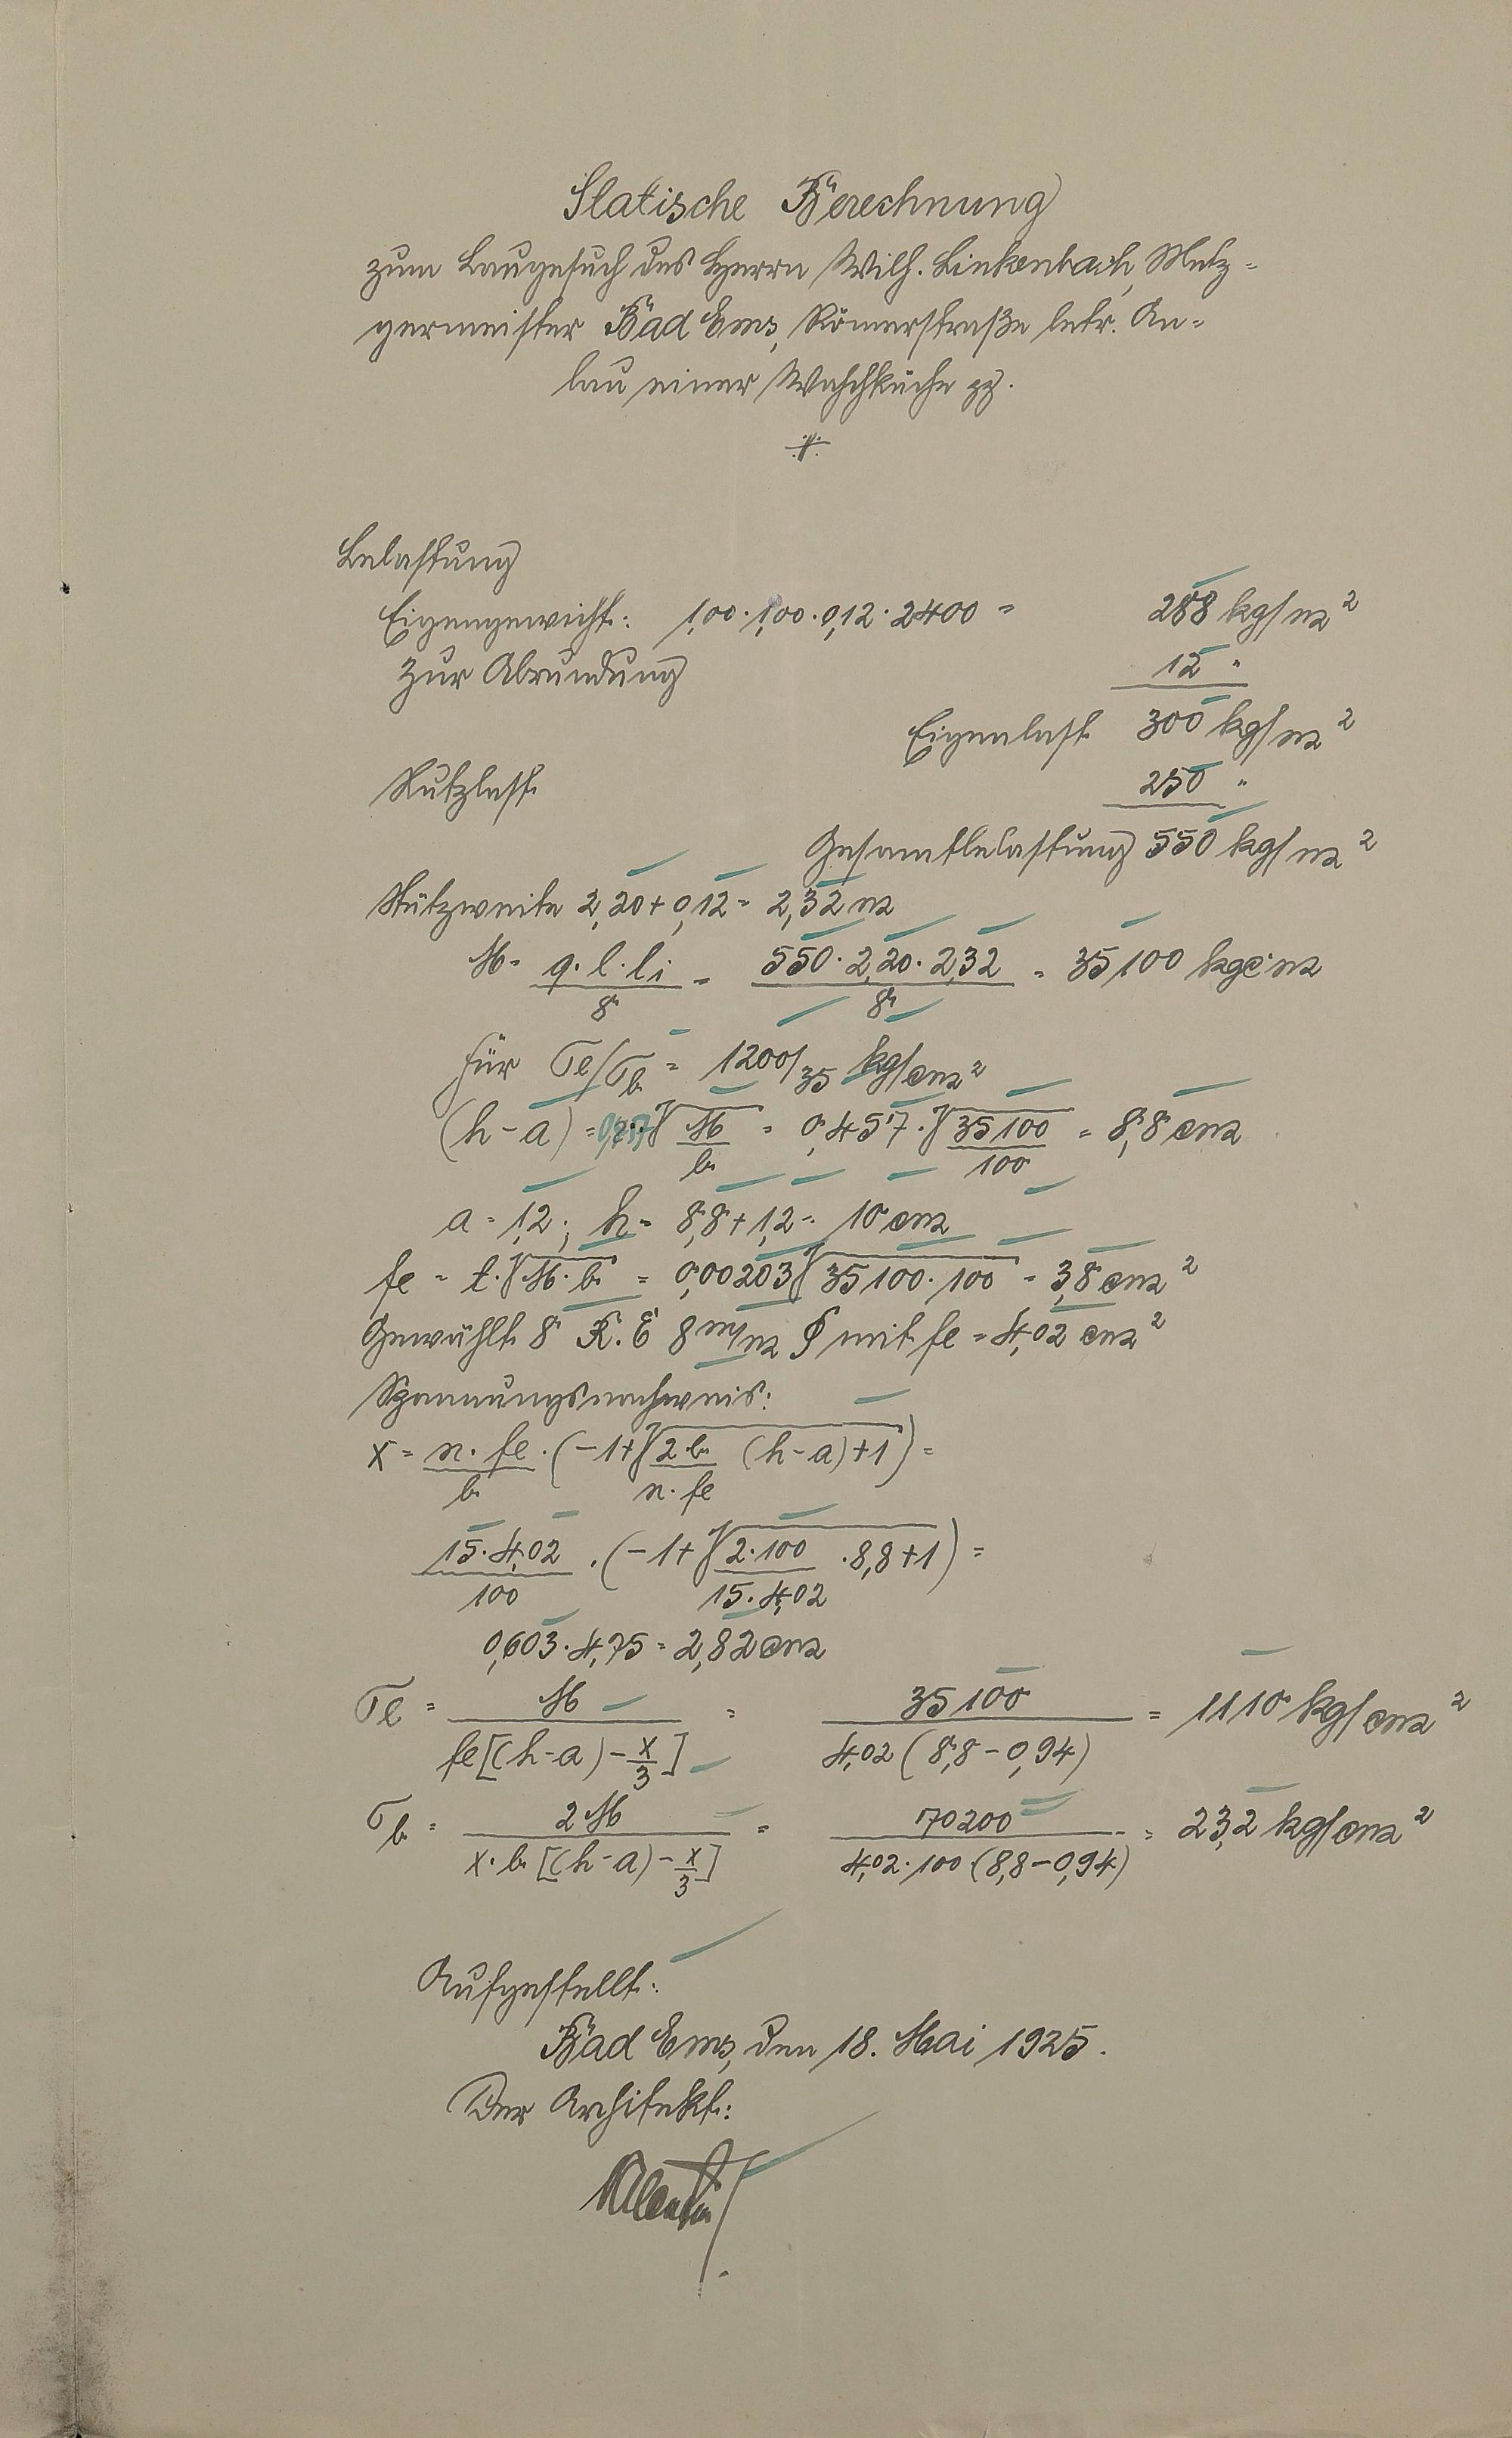 Statische Berechnung
zum Baugesuch des Herrn Wilh. Linkenbach, Metz-
germeister Bad Ems, Römerstraße betr. An-
bau einer Waschküche pp.
Belastung
Eigengewicht: 1,00 · 1,00 · 0,12 · 2400 = 288 kg/m²
Zur Abrundung 12 "
Eigenlast 300 kg/m²
Nutzlast 250 "
Gesamtbelastung 550 kg/m²
Stützweite 2,20 + 0,12 = 2,32 m
M = q · l · li / 8 = 550 · 2,20 · 2,32 / 8 = 35100 kgcm
für σe/σb = 1200/35 kg/cm²
(h - a) = √(M / b) = 0,457 · √(35100 / 100) = 8,8 cm
a = 1,2 ; h = 8,8 + 1,2 = 10 cm
fe = t · √(M · b) = 0,00203 √(35100 · 100) = 3,8 cm²
Gewählt 8 R.E 8 m/m ∮ mit fe = 4,02 cm²
Spannungsnachweis:
x = n · fe / b · (-1 + √(2 · b / n · fe (h - a) + 1)) =
15 · 4,02 / 100 · (-1 + √(2 · 100 / 15 · 4,02 · 8,8 + 1)) =
0,603 · 4,75 = 2,82 cm
σe = M / fe [(h - a) - x/3] = 35100 / 4,02 (8,8 - 0,94) = 1110 kg/cm²
σb = 2 M / x · b [(h - a) - x/3] = 70200 / 4,02 · 100 (8,8 - 0,94) = 23,2 kg/cm²
Aufgestellt:
Bad Ems, den 18. Mai 1925.
Der Architekt: